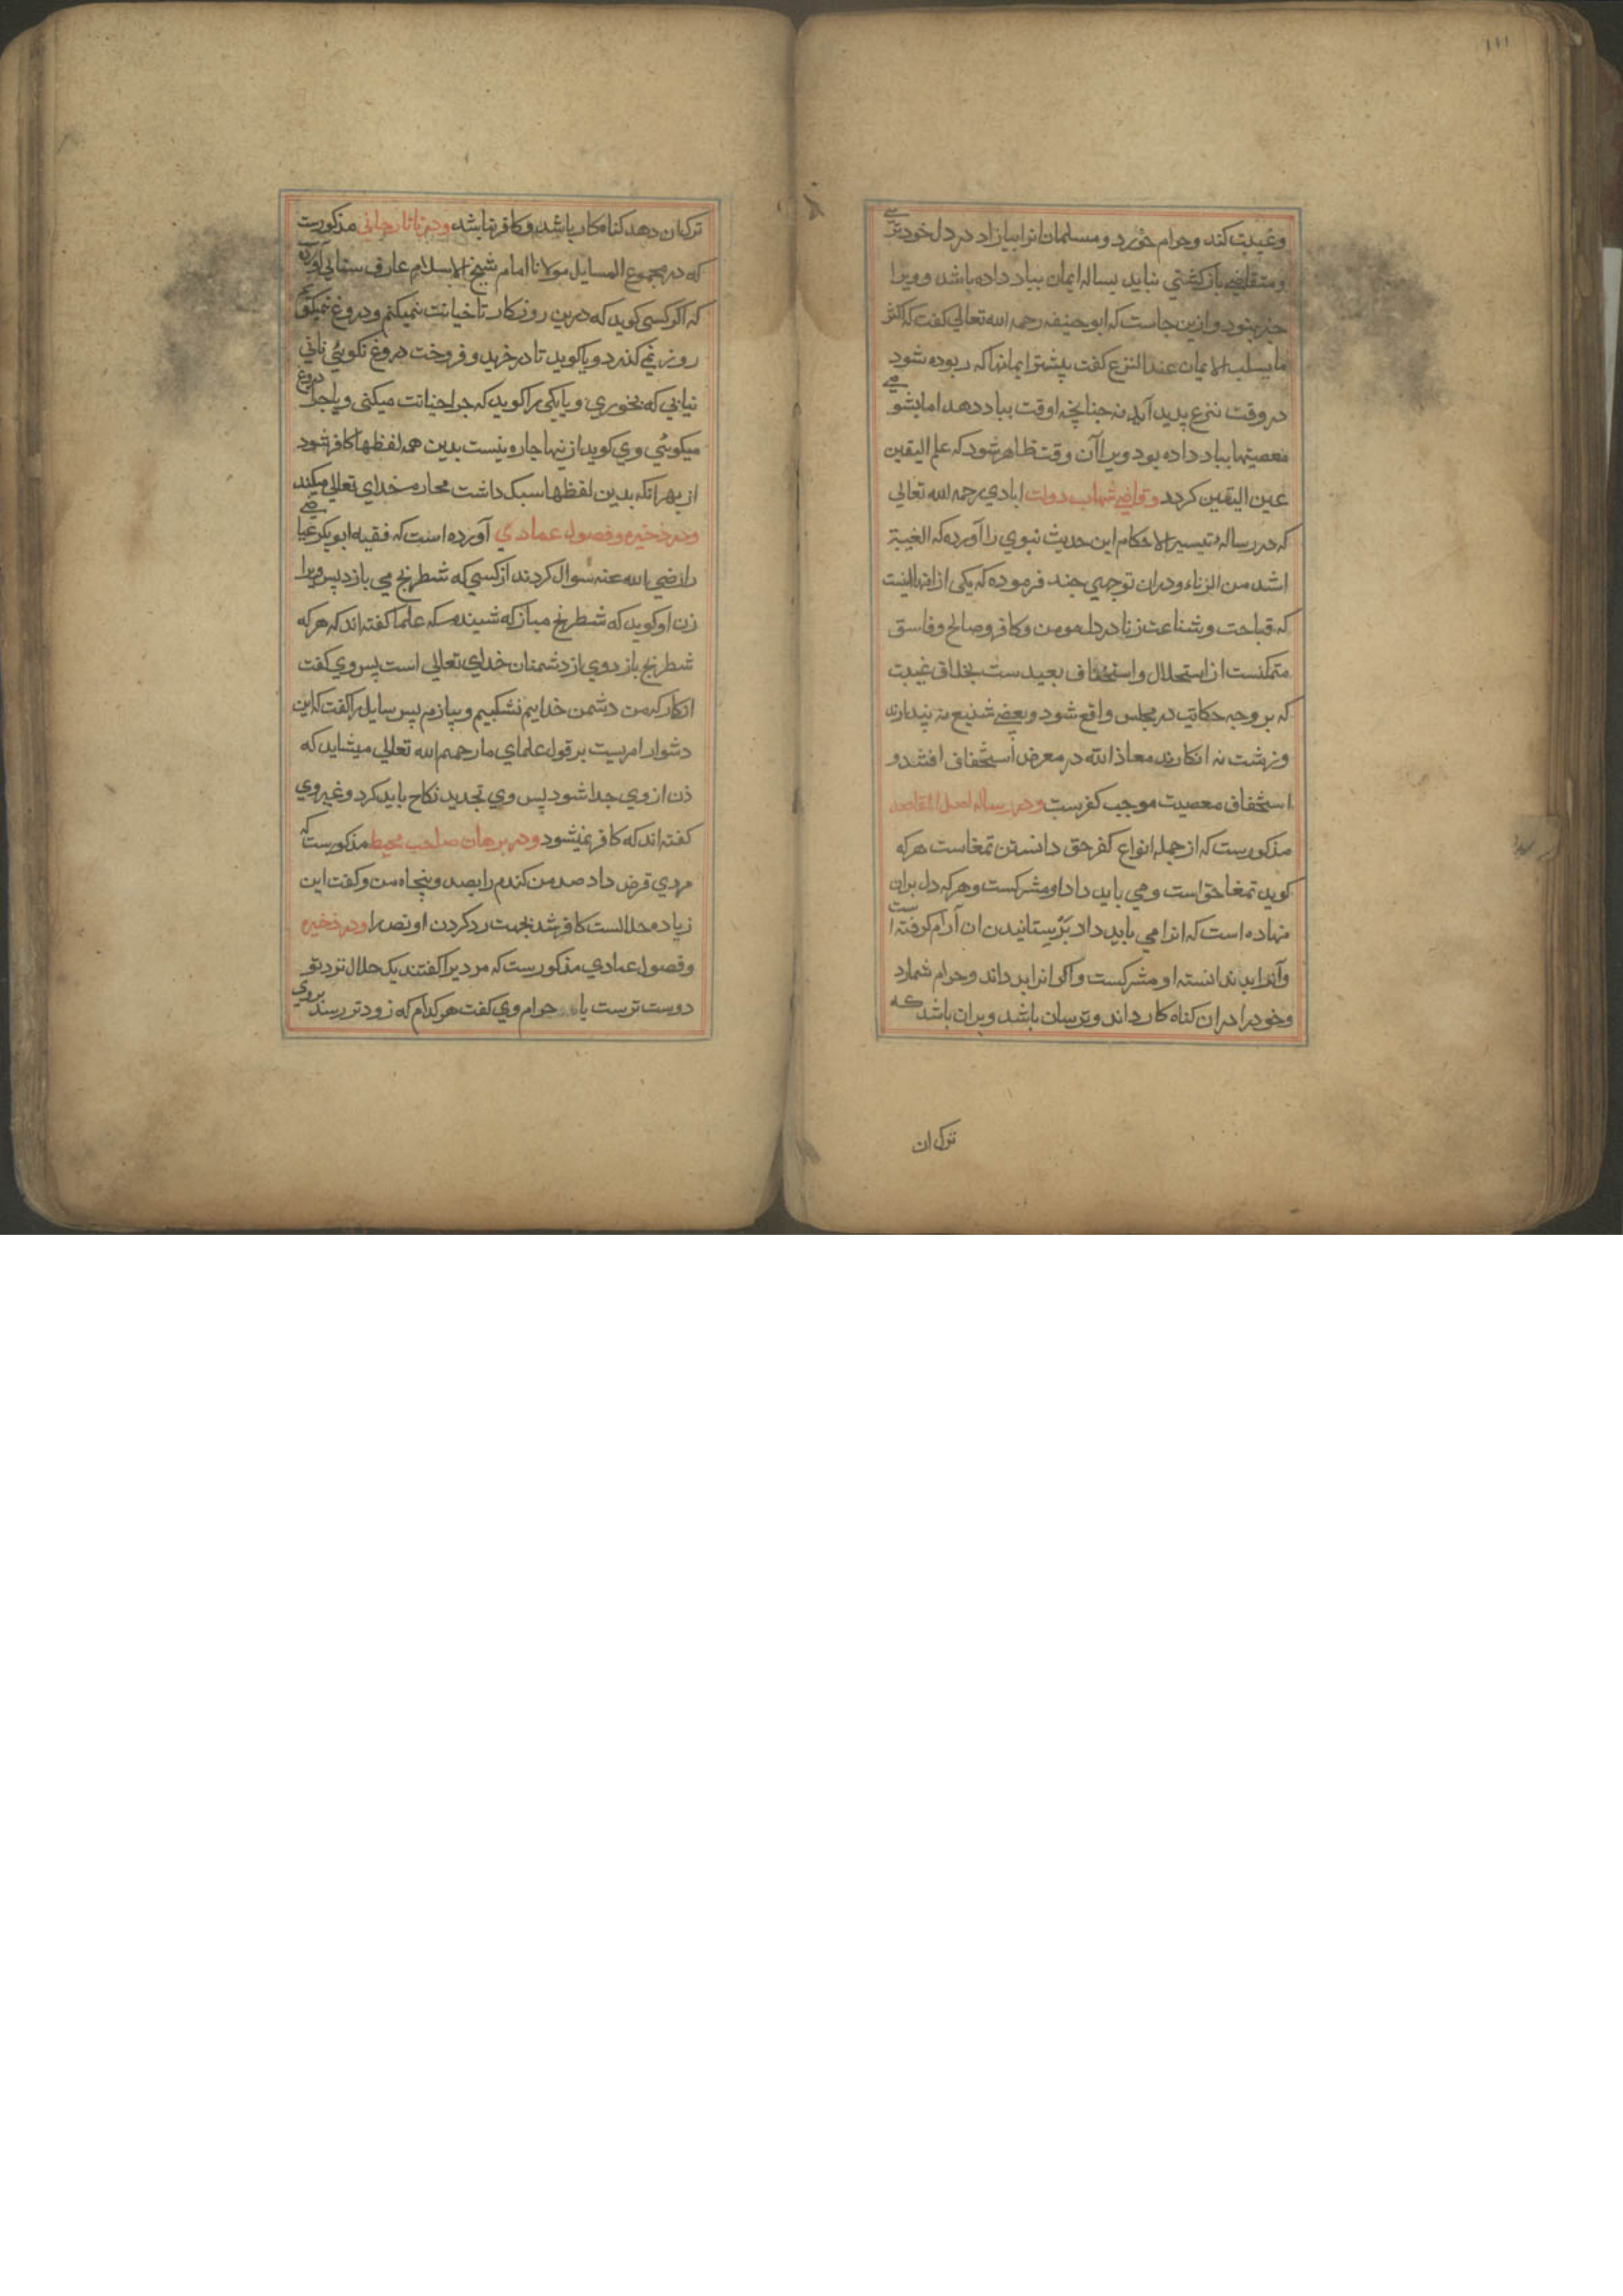 ۱۱۱
وغیبت کند وحرام خورد و مسلمانانرا بیازاد در دل خود ترسی
ومتقاضی بازکشتی نیاید بساله ایمان بباد داده باشد و ویرا
خبر نبود و ازین جاست که ابوحنیفه رحمه الله تعالی کفت که اکثر
ما یسلب الایمان عند النزع کفت بیشتر ایمانها که ربوده شود
در وقت نزع پدید آید نه چنانچه او وقت بباد دهد اما بشومی
معصیتها بباد داده بود ویرا آن وقت ظاهر شود که علم الیقین
عین الیقین کردد وقاضی شهاب دولت ابادی رحمه الله تعالی
که در رساله تیسیر الاحکام این حدیث نبوی را آورده که الغیبة
اشد من الزناء ودران توجیهی چند فرموده که یکی از انها اینست
که قباحت وشناعت زنا در دل مومن وکافر وصالح وفاسق
متمکنست از استحلال و استخفاف بعیدست بخلاف غیبت
که بر وجه حکایت در مجلس واقع شود وبعضی شنیع نه پندارند
وزشت نه انکارند معاذ الله در معرض استخفاف افتند و
استخفاف معصیت موجب کفرست ودر رساله اصل المقاصد
مذکورست که از جمله انواع کفر حق دانستن تمغاست هرکه
کوید تمغا حق است ومی باید داد او مشرکست وهرکه دل بران
نهاده است که انرا می باید داد بر ستانیدن ان آرام کرفته است
وآنرا بد ندانسته او مشرکست واکر انرا بد داند وحرام شمارد
وخودرا دران کناه کار داند وترسان باشد وبران باشد که
ترک ان
ترک ان دهد کناه کار باشد وکافر نباشد ودر تاتارخانی مذکورست
که در مجموع المسایل مولانا امام شیخ الاسلام عارف سنائی آورده
که اکر کسی کوید که درین روزکار تا خیانت نمیکنم ودروغ نمیکویم
روز نمی کذرد ویا کوید تا در خرید وفروخت دروغ نکوئی نانی
نیابی که بخوری ویا یکی را کوید که چرا خیانت میکنی ویا چرا دروغ
میکوئی وی کوید ازینها چاره نیست بدین همه لفظها کافر شود
از بهر انکه بدین لفظها سبک داشت محارم خدای تعالی میکند
ودر ذخیره وفصول عمادی آورده است که فقیه ابوبکر عیاضی
را رضی الله عنه سوال کردند از کسی که شطرنج می بازد پس ویرا
زن او کوید که شطرنج مباز که شنیده‌ که علما کفته اند که هرکه
شطرنج بازد وی از دشمنان خدای تعالی است پس وی کفت
ار کار که من دشمن خدایم نشکیبم وبیازم پس سایل را کفت که این
دشوار امریست بر قول علمای ما رحمهم الله تعالی میشاید که
زن از وی جدا شود پس وی تجدید نکاح باید کرد وغیر وی
کفته اند که کافر نمیشود ودر برهان صاحب محیط مذکورست که
مردی قرض داد صد من کندم را بصد وپنجاه من وکفت این
زیاده حلالست کافر شد بجهت رد کردن او نص را ودر ذخیره
وفصول عمادی مذکورست که مردیرا کفتند یک حلال نزد تو
دوست ترست یا حرام وی کفت هرکدام که زودتر رسند بروی